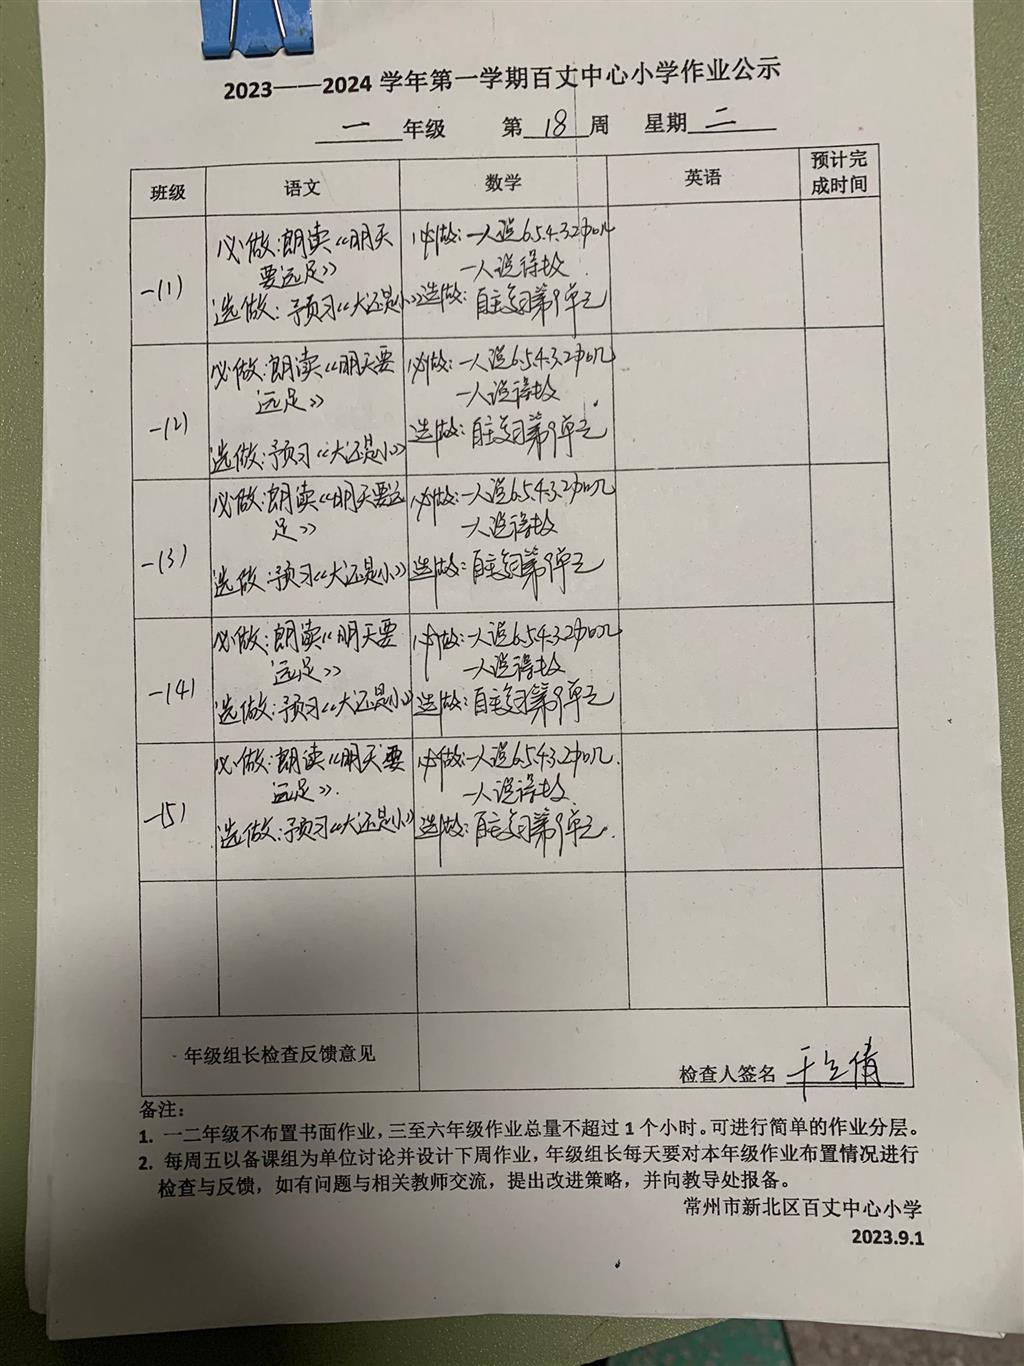 2023——2024 学年第一学期百丈中心小学作业公示
一 年级 第 18 周 星期 二
班级 语文 数学 英语 预计完成时间
一(1)
必做:朗读《明天
要远足》
选做:预习《大还是小》
必做:一人说6.5.4.3.2加几
一人说得数
选做:自主复习第9单元
一(2)
必做:朗读《明天要
远足》
选做:预习《大还是小》
必做:一人说6.5.4.3.2加几
一人说得数
选做:自主复习第9单元
一(3)
必做:朗读《明天要远
足》
选做:预习《大还是小》
必做:一人说6.5.4.3.2加几
一人说得数
选做:自主复习第9单元
一(4)
必做:朗读《明天要
远足》
选做:预习《大还是小》
必做:一人说6.5.4.3.2加几
一人说得数
选做:自主复习第9单元
一(5)
必做:朗读《明天要
远足》.
选做:预习《大还是小》
必做:一人说6.5.4.3.2加几.
一人说得数
选做:自主复习第9单元.
年级组长检查反馈意见
检查人签名
备注:
1. 一二年级不布置书面作业,三至六年级作业总量不超过 1 个小时。可进行简单的作业分层。
2. 每周五以备课组为单位讨论并设计下周作业,年级组长每天要对本年级作业布置情况进行
检查与反馈,如有问题与相关教师交流,提出改进策略,并向教导处报备。
常州市新北区百丈中心小学
2023.9.1